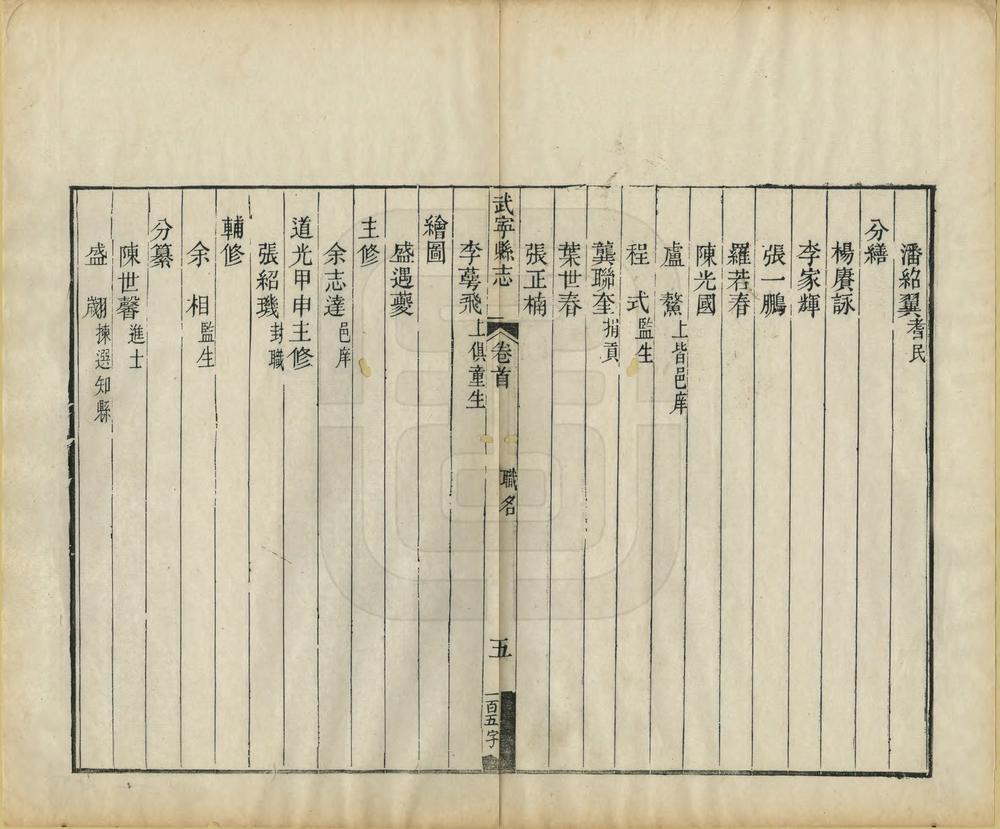 潘紹翼耆民
分繕
楊賡詠
李家輝
張一鵬
羅若春
陳光國
盧鰲上皆邑庠
程式監生
龔聯奎捐貢
葉世春
張正楠
武寧縣志 卷首 職名 五 一百五字
李萼飛上俱童生
繪圖
盛遇夔
主修
余志達邑庠
道光甲申主修
張紹璣封職
輔修
余相監生
分纂
陳世馨進士
盛翽揀選知縣